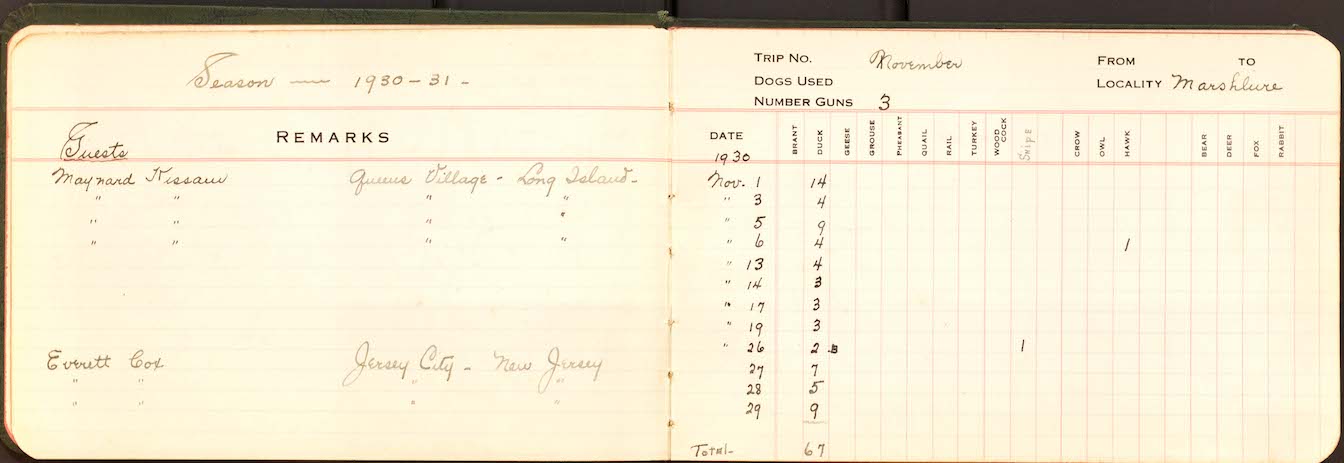 Season — 1930-31-
Guests
REMARKS
Maynard Nissam Queens Village - Long Island-
" " " "
" " " "
" " " "
Everett Cox Jersey City - New Jersey
" " " "
" " " "
TRIP NO. November FROM TO
DOGS USED LOCALITY Marshlure
NUMBER GUNS 3
DATE BRANT DUCK GEESE GROUSE PHEASANT QUAIL RAIL TURKEY WOOD COCK Snipe CROW OWL HAWK BEAR DEER FOX RABBIT
1930
Nov. 1 14
" 3 4
" 5 9
" 6 4 1
" 13 4
" 14 3
" 17 3
" 19 3
" 26 2 1
27 7
28 5
29 9
Total- 67